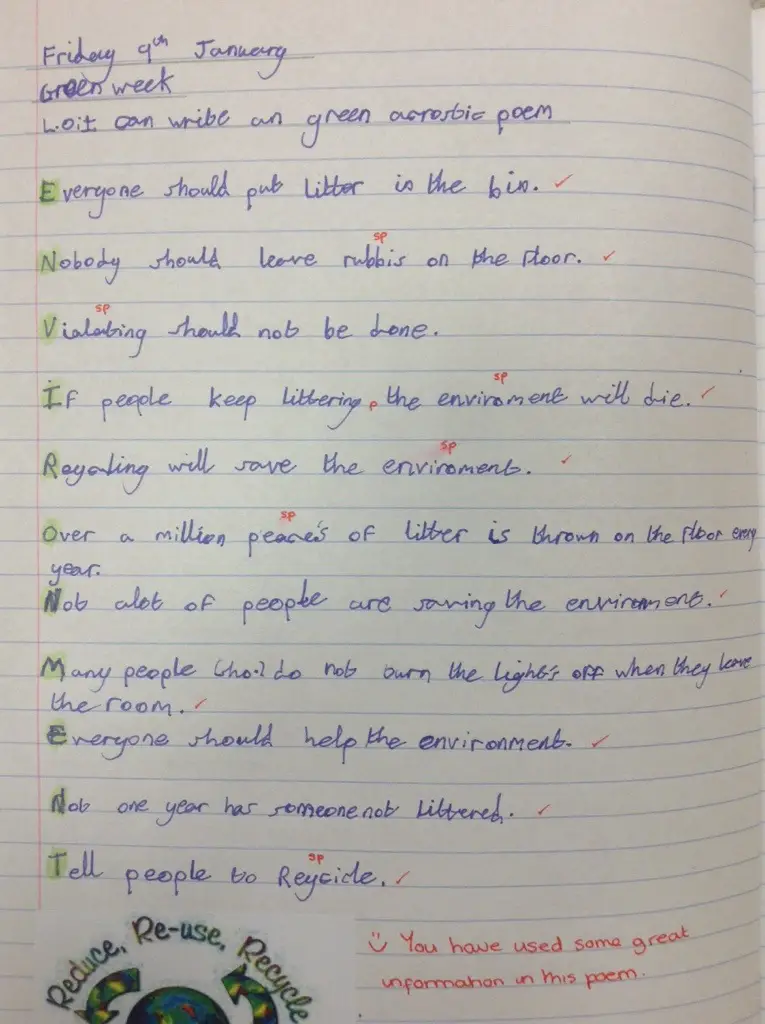 Friday 9th January
Green week
L.O:I can write an green acrostic poem
Everyone should put litter in the bin. ✓
sp
Nobody should leave rubbis on the floor. ✓
sp
Vialating should not be done.
sp
If people keep littering, the enviroment will die. ✓
sp
Reycaling will save the enviroment. ✓
sp
Over a million peaces of litter is thrown on the floor every
year.
Not alot of people are saving the enviroment. ✓
Many people (ho.) do not turn the lights off when they leave
the room. ✓
Everyone should help the environment. ✓
Not one year has someone not littered. ✓
sp
Tell people to Reycicle. ✓
Reduce, Re-use, Recycle
You have used some great
information in this poem.